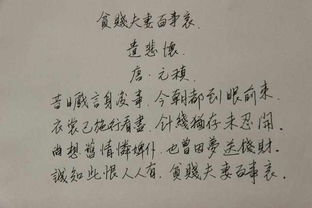 貧賤夫妻百事哀.
遣悲懷.
唐·元稹
昔日戲言身後事,今朝都到眼前來.
衣裳已施行看盡,針綫猶存未忍開.
尚想舊情憐婢僕,也曾因夢送錢財.
誠知此恨人人有,貧賤夫妻百事哀.